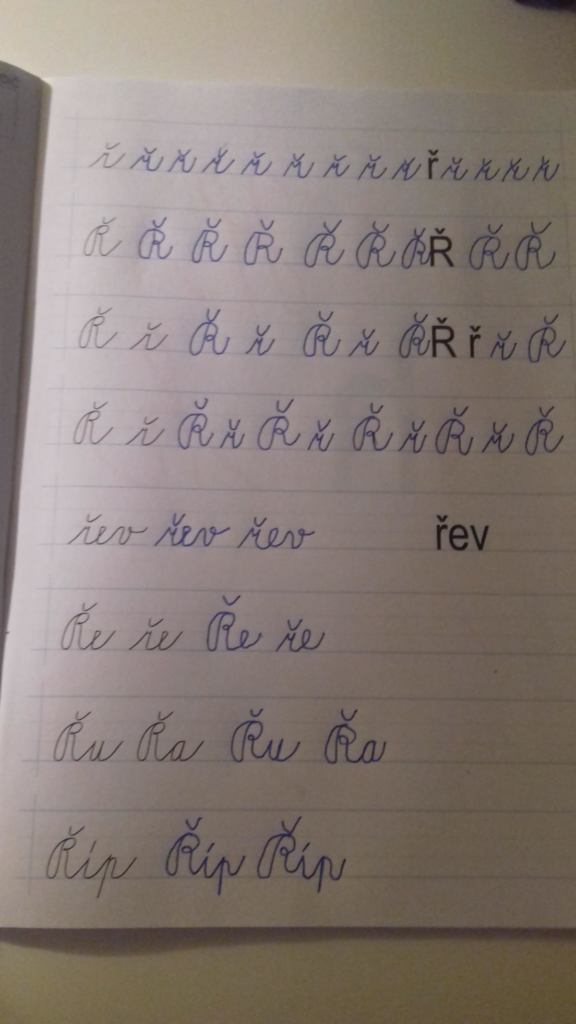 ř ř ř ř ř ř ř ř ř ř ř ř ř ř
Ř Ř Ř Ř Ř Ř Ř Ř Ř Ř
Ř ř Ř ř Ř ř Ř Ř ř ř Ř
Ř ř Ř ř Ř ř Ř ř Ř ř Ř
řev řev řev řev
Ře ře Ře ře
Řu Řa Řu Řa
Říp Říp Říp